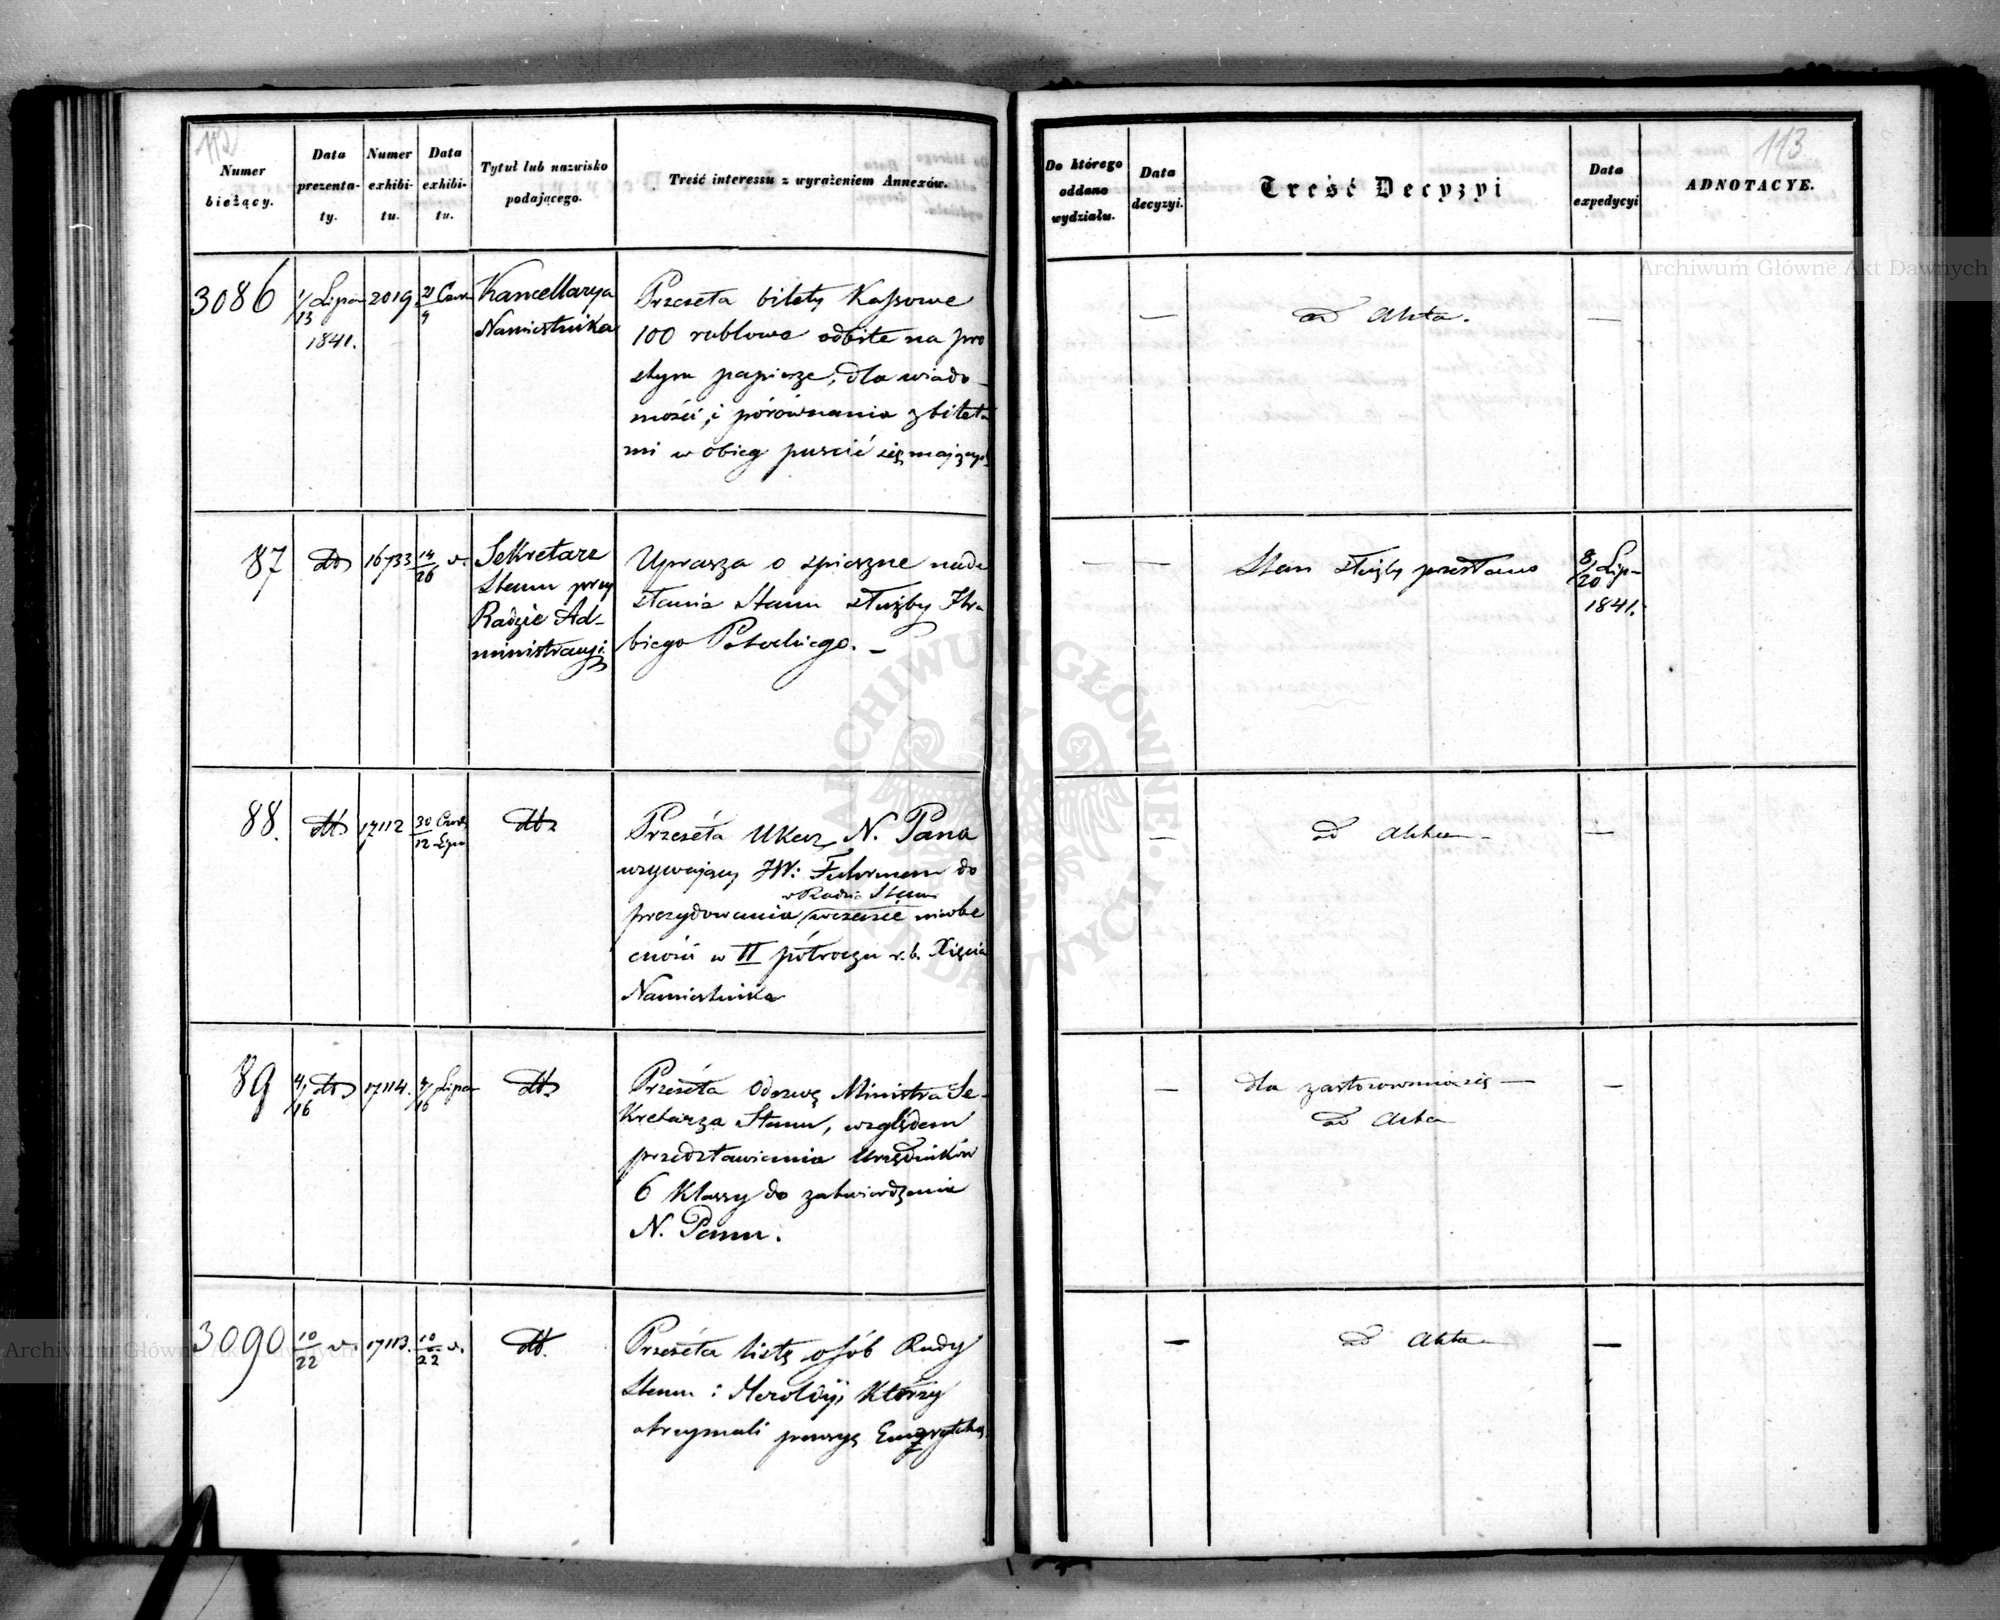 112
Numer
bieżący.
Data
prezenta-
ty.
Numer
exhibi-
tu.
Data
exhibi-
tu.
Tytuł lub nazwisko
podającego.
Treść interessu z wyrażeniem Annexów.
3086
1/13 Lipca
1841.
2019
21/9 Czer
Kancellarya
Namiestnika
Przeseła bilety Kassowe
100 rublowe odbite na pro
stym papierze, dla wiado-
mości, i porównania z bileta
mi w obieg puścić się mających
87
dto
16733
14/26 v.
Sekretarz
Stanu przy
Radzie Ad-
ministracyj.
Uprasza o spieszne nade
słanie Stanu służby Hra
biego Potockiego. -
88.
dto
17112
30 Czerw/12 Lipca
dto
Przeseła Ukaz N. Pana
wzywający JW: Fuhrmann do
w Radzie Stanu
prezydowania w czasie nieobe
cności w II półroczu r.b. Xięcia
Namiestnika
89
4/16 dto
17114.
4/16 Lipca
dto
Przeseła Odezwę Ministra Se-
kretarza Stanu, względem
przedstawienia Urzędników
6 Klassy do zatwierdzenia
N. Panu.
3090
10/22 v.
17113.
10/22 v.
dto.
Przeseła listę osób Rady
Stanu i Heroldyi, Którzy
otrzymali pensyę Emerytalną.
113
Do którego
oddano
wydziału.
Data
decyzyi.
Treść Decyzyi
Data
expedycyi
ADNOTACYE.
—
ad Akta.
—
— —
Stan służby przesłano
8/20 Lip-
1841.
—
ad Akta -
—
—
dla zastosowania się —
ad Akta
—
—
ad Akta
—
Archiwum Główne Akt Dawnych
Archiwum Główne Akt Dawnych
ARCHIWUM GŁÓWNE AKT DAWNYCH